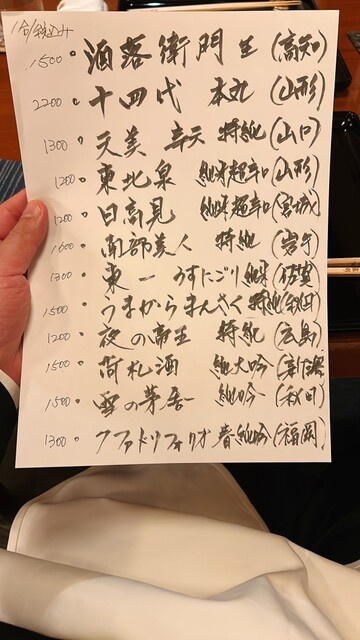 1合/税込み
1500 酒落衛門 生 (高知)
2200 十四代 本丸 (山形)
1300 天美 辛天 特純 (山口)
1200 東北泉 純米超辛口 (山形)
1200 日高見 純米超辛口 (宮城)
1600 南部美人 特純 (岩手)
1300 東一 うすにごり 純米 (佐賀)
1500 うまからまんさく 特純 (秋田)
1200 夜の帝王 特純 (広島)
1500 荷札酒 純大吟 (新潟)
1500 雪の茅舎 純吟 (秋田)
1300 クアドリフォリオ 春純吟 (福岡)